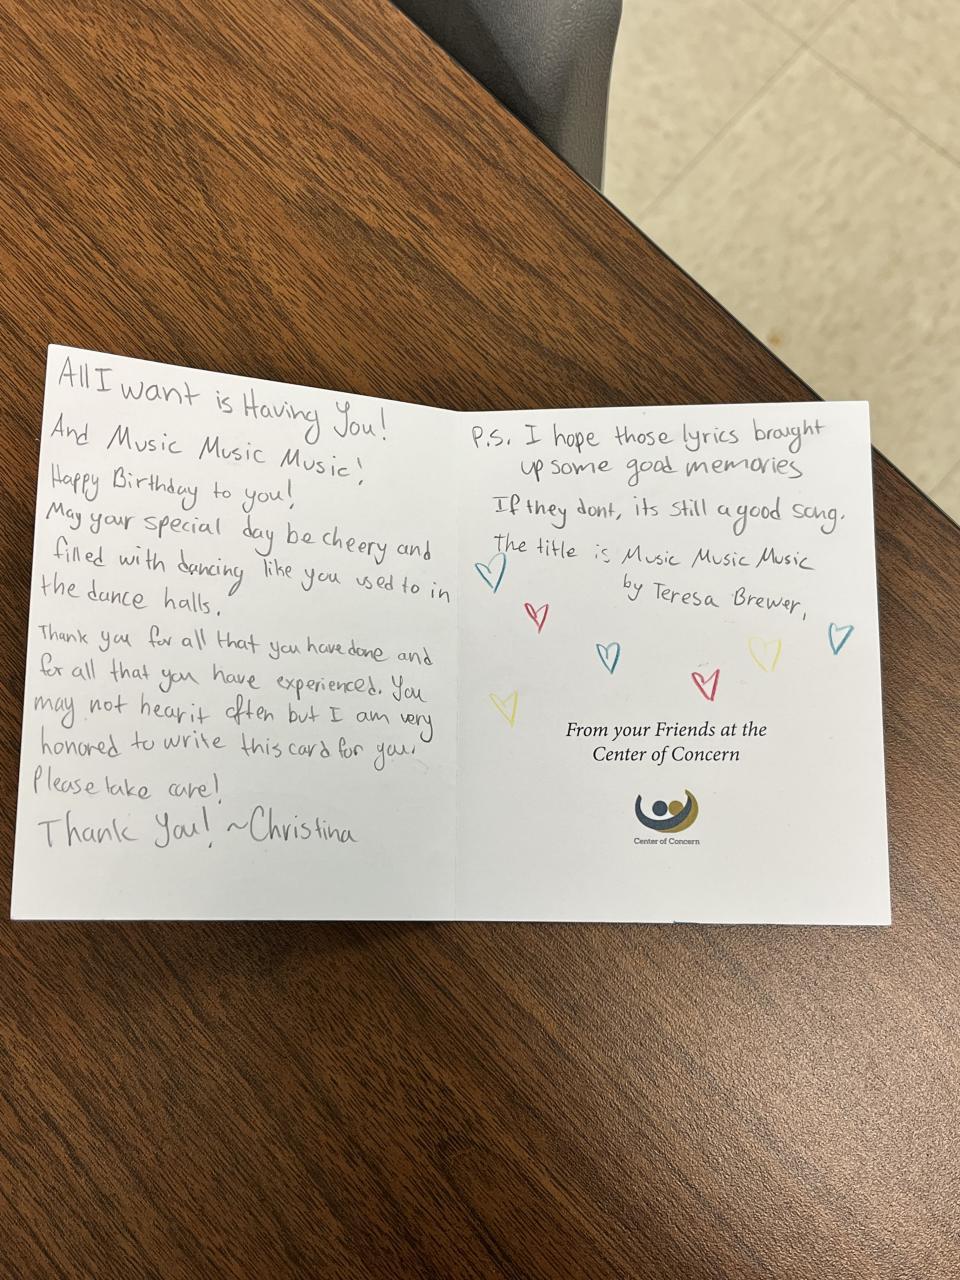 All I want is Having You!
And Music Music Music!
Happy Birthday to you!
May your special day be cheery and
filled with dancing like you used to in
the dance halls.
Thank you for all that you have done and
for all that you have experienced. You
may not hear it often but I am very
honored to write this card for you.
Please take care!
Thank You! ~Christina
P.S. I hope those lyrics brought
up some good memories
If they dont, its still a good song.
The title is Music Music Music
by Teresa Brewer,
From your Friends at the
Center of Concern
Center of Concern